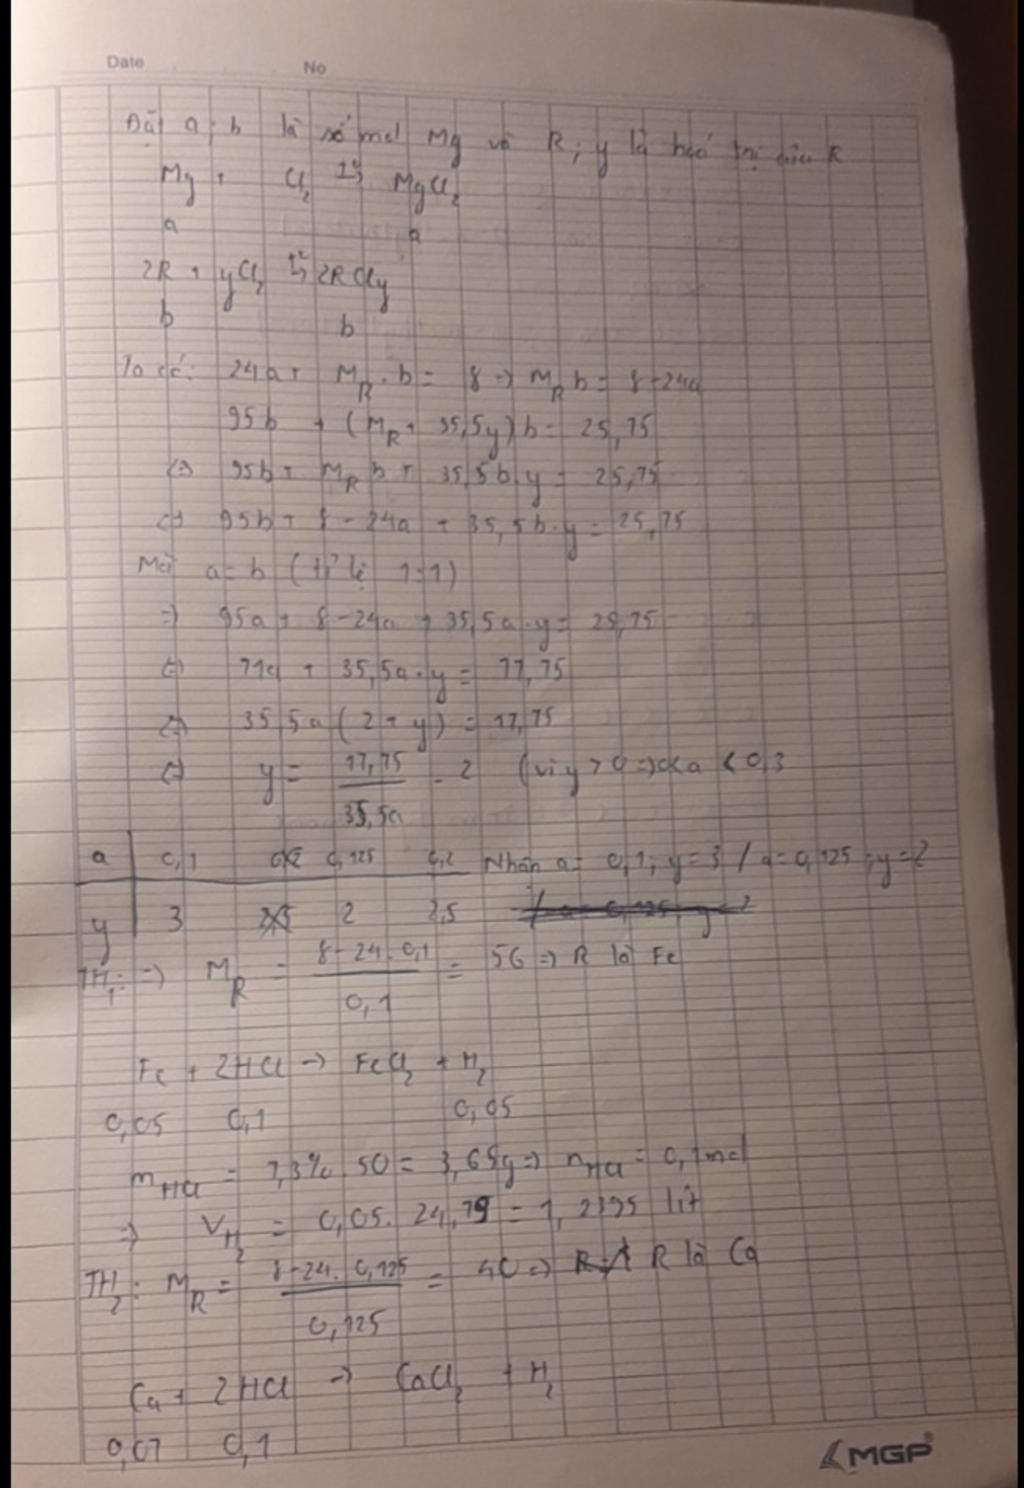 Date No
Đặt a, b là số mol Mg và R, y là hoá trị của R
Mg + Cl₂ t°→ MgCl₂
a a
2R + yCl₂ t°→ 2RCly
b b
Ta có: 24a + M_R . b = 8 => M_R b = 8-24a
95b + (M_R + 35,5y) b = 25,75
<=> 95b + M_R b + 35,5b.y = 25,75
<=> 95b + 8 - 24a + 35,5b.y = 25,75
Mà a=b (tỉ lệ 1:1)
=> 95a + 8-24a + 35,5a.y = 25,75
<=> 71a + 35,5a.y = 17,75
<=> 35,5a (2+y) = 17,75
<=> y = 17,75/35,5a - 2 (vì y>0 => 0<a<0,3
a 0,1 0,125 0,2 Nhận a = 0,1, y=3 / a=0,125, y=2
y 3 2 2,5
TH₁: => M_R = 8-24.0,1/0,1 = 56 => R là Fe
Fe + 2HCl -> FeCl₂ + H₂
0,05 0,1 0,05
m_HCl = 7,3%.50 = 3,65g => n_HCl = 0,1mol
=> V_H₂ = 0,05.24,79 = 1,2395 lít
TH₂: M_R = 8-24.0,125/0,125 = 40 => R là Ca
Ca + 2HCl -> CaCl₂ + H₂
0,07 0,1
MGP